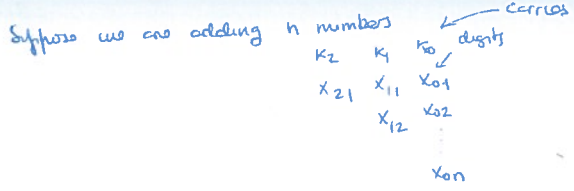 Suppose we are adding n numbers
carries
digits
K2 K1 K0
X21 X11 X01
X12 X02
X0n